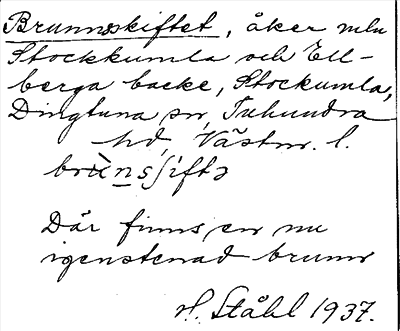 Brunnskiftet, åker mln
Stockkumla och Ell-
berga backe, Stockumla,
Dingtuna sn, Tuhundra
hd, Västm. l.
brùnsʃiftə
Där finns en nu
igenstenad brunn
H. Ståhl 1937.